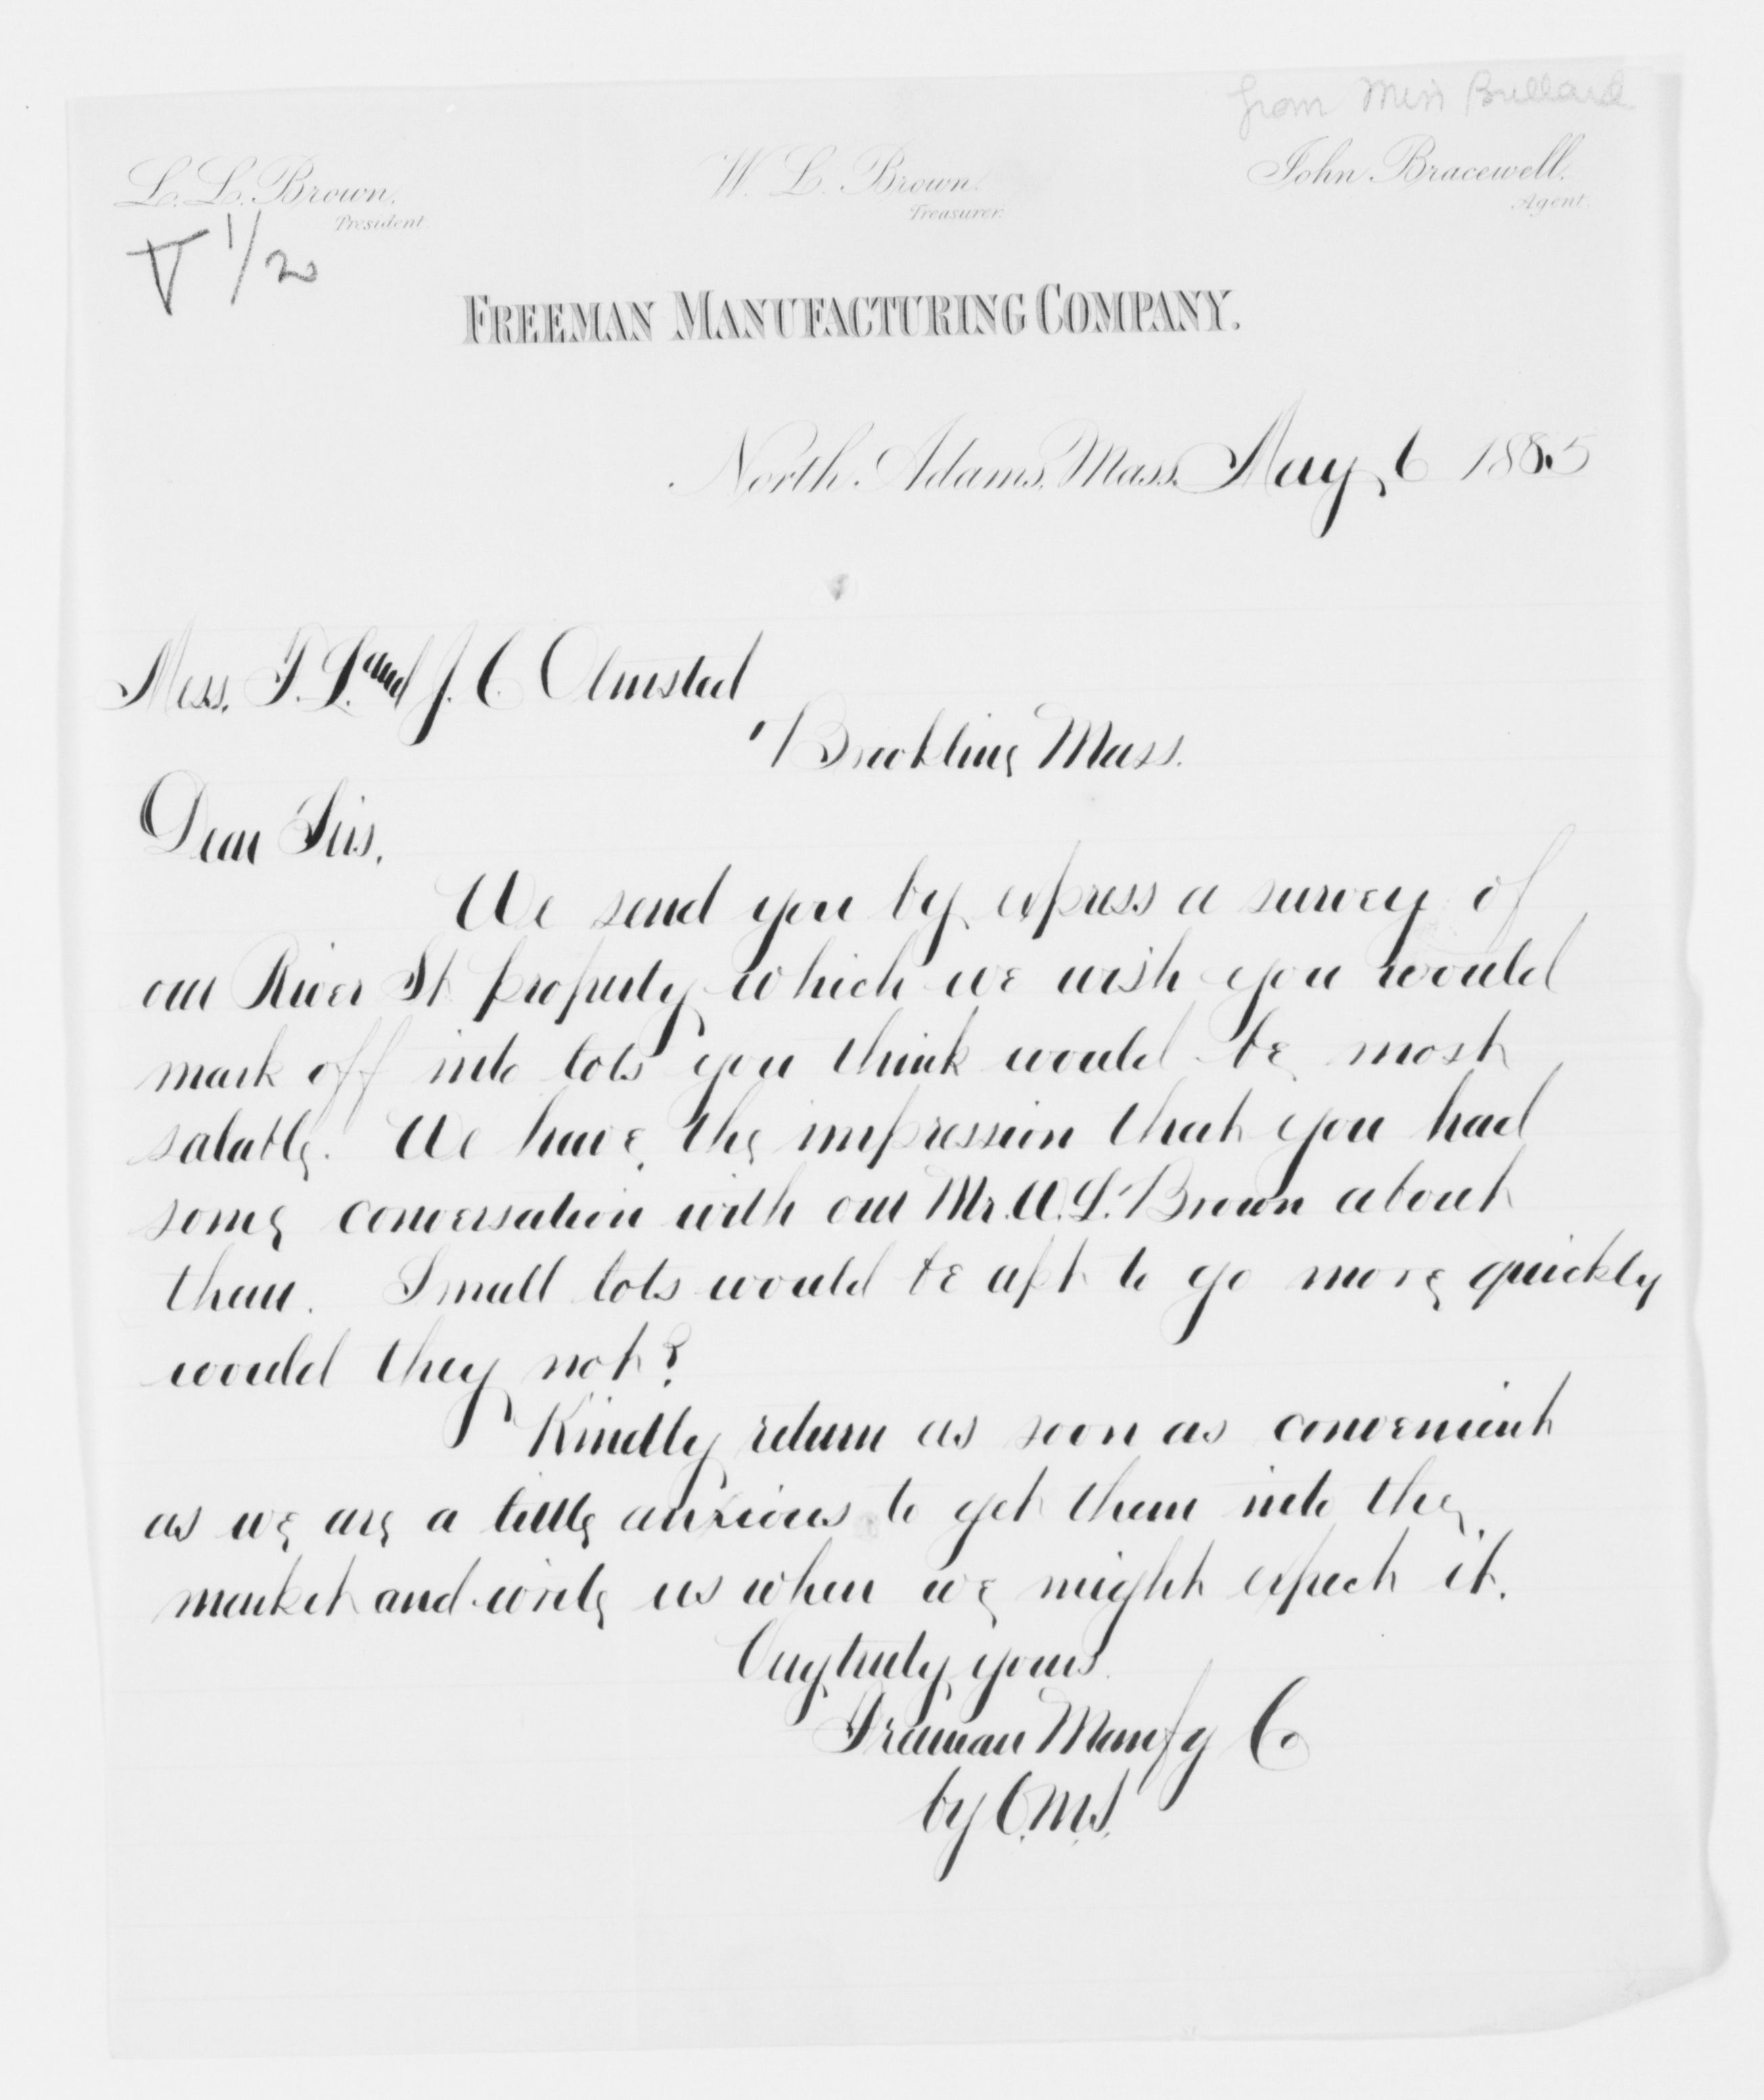 from Miss Bullard
L. L. Brown. W. L. Brown. John Bracewell.
President. Treasurer. Agent.
1/2
FREEMAN MANUFACTURING COMPANY.
North Adams, Mass. May 6 1885
Mess. F. L. and J. C. Olmsted
Brookline Mass.
Dear Sirs.
We send you by express a survey of
our River St property which we wish you would
mark off into lots you think would be most
salable. We have the impression that you had
some conversation with our Mr. W. L. Brown about
them. Small lots would be apt to go more quickly
would they not?
Kindly return as soon as convenient
as we are a little anxious to get them into the
market and write us when we might expect it.
Very truly yours
Freeman Manfg Co
by C.M.S.